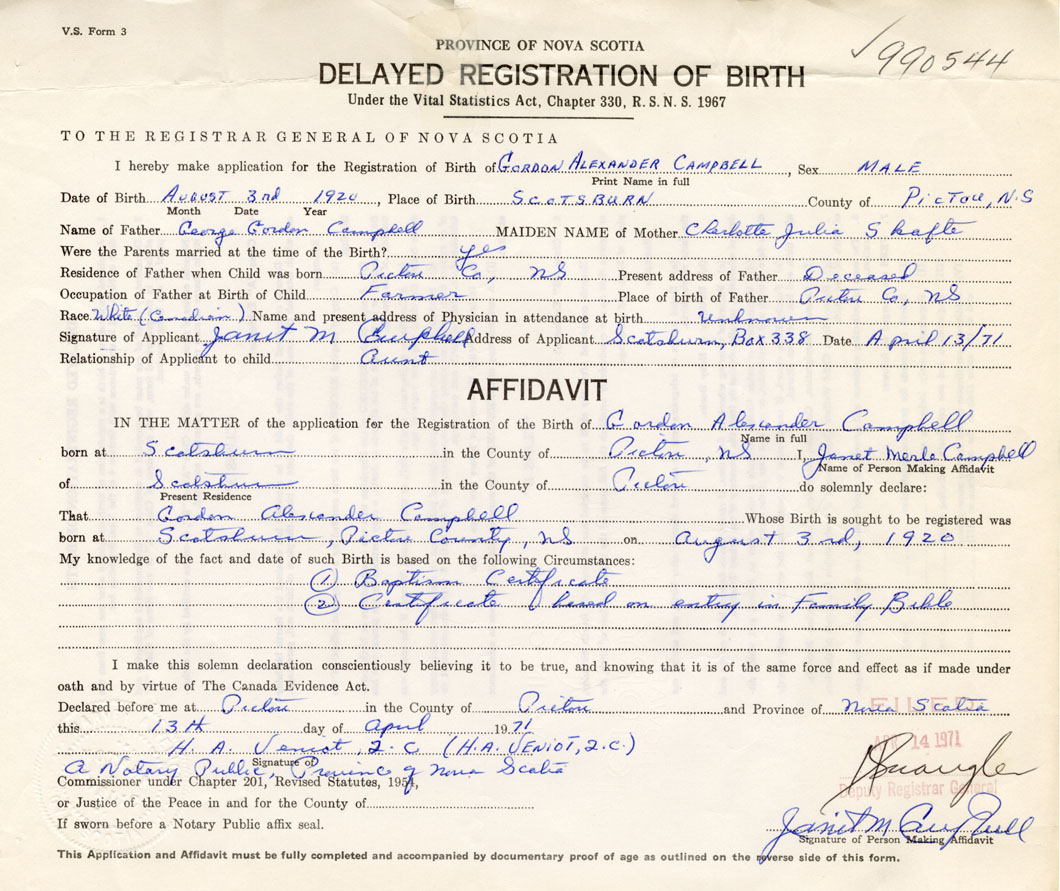 V.S. Form 3
✓990544
PROVINCE OF NOVA SCOTIA
DELAYED REGISTRATION OF BIRTH
Under the Vital Statistics Act, Chapter 330, R. S. N. S. 1967
TO THE REGISTRAR GENERAL OF NOVA SCOTIA
I hereby make application for the Registration of Birth of GORDON ALEXANDER CAMPBELL, Sex MALE
Print Name in full
Date of Birth AUGUST 3rd 1920, Place of Birth SCOTSBURN County of PICTOU, N.S
Month Date Year
Name of Father George Gordon Campbell MAIDEN NAME of Mother Charlotte Julia Skafte
Were the Parents married at the time of the Birth? yes
Residence of Father when Child was born Pictou Co, NS Present address of Father Deceased
Occupation of Father at Birth of Child Farmer Place of birth of Father Pictou Co, NS
Race White (Canadian) Name and present address of Physician in attendance at birth unknown
Signature of Applicant Janet M Campbell Address of Applicant Scotsburn, Box 338 Date April 13/71
Relationship of Applicant to child Aunt
AFFIDAVIT
IN THE MATTER of the application for the Registration of the Birth of Gordon Alexander Campbell
Name in full
born at Scotsburn in the County of Pictou, NS I, Janet Merle Campbell
Name of Person Making Affidavit
of Scotsburn in the County of Pictou do solemnly declare:
Present Residence
That Gordon Alexander Campbell Whose Birth is sought to be registered was
born at Scotsburn, Pictou County, NS on August 3rd, 1920
My knowledge of the fact and date of such Birth is based on the following Circumstances:
(1) Baptism Certificate
(2) Certificate based on entry in Family Bible
I make this solemn declaration conscientiously believing it to be true, and knowing that it is of the same force and effect as if made under
oath and by virtue of The Canada Evidence Act.
Declared before me at Pictou in the County of Pictou and Province of Nova Scotia
this 13th day of April 1971
FILED
APR 14 1971
H. A. Veniot, Q.C (H.A. VENIOT, Q.C.)
Signature of
A Notary Public, Province of Nova Scotia
Commissioner under Chapter 201, Revised Statutes, 1954,
Deputy Registrar General
or Justice of the Peace in and for the County of
If sworn before a Notary Public affix seal.
Janet M Campbell
Signature of Person Making Affidavit
This Application and Affidavit must be fully completed and accompanied by documentary proof of age as outlined on the reverse side of this form.